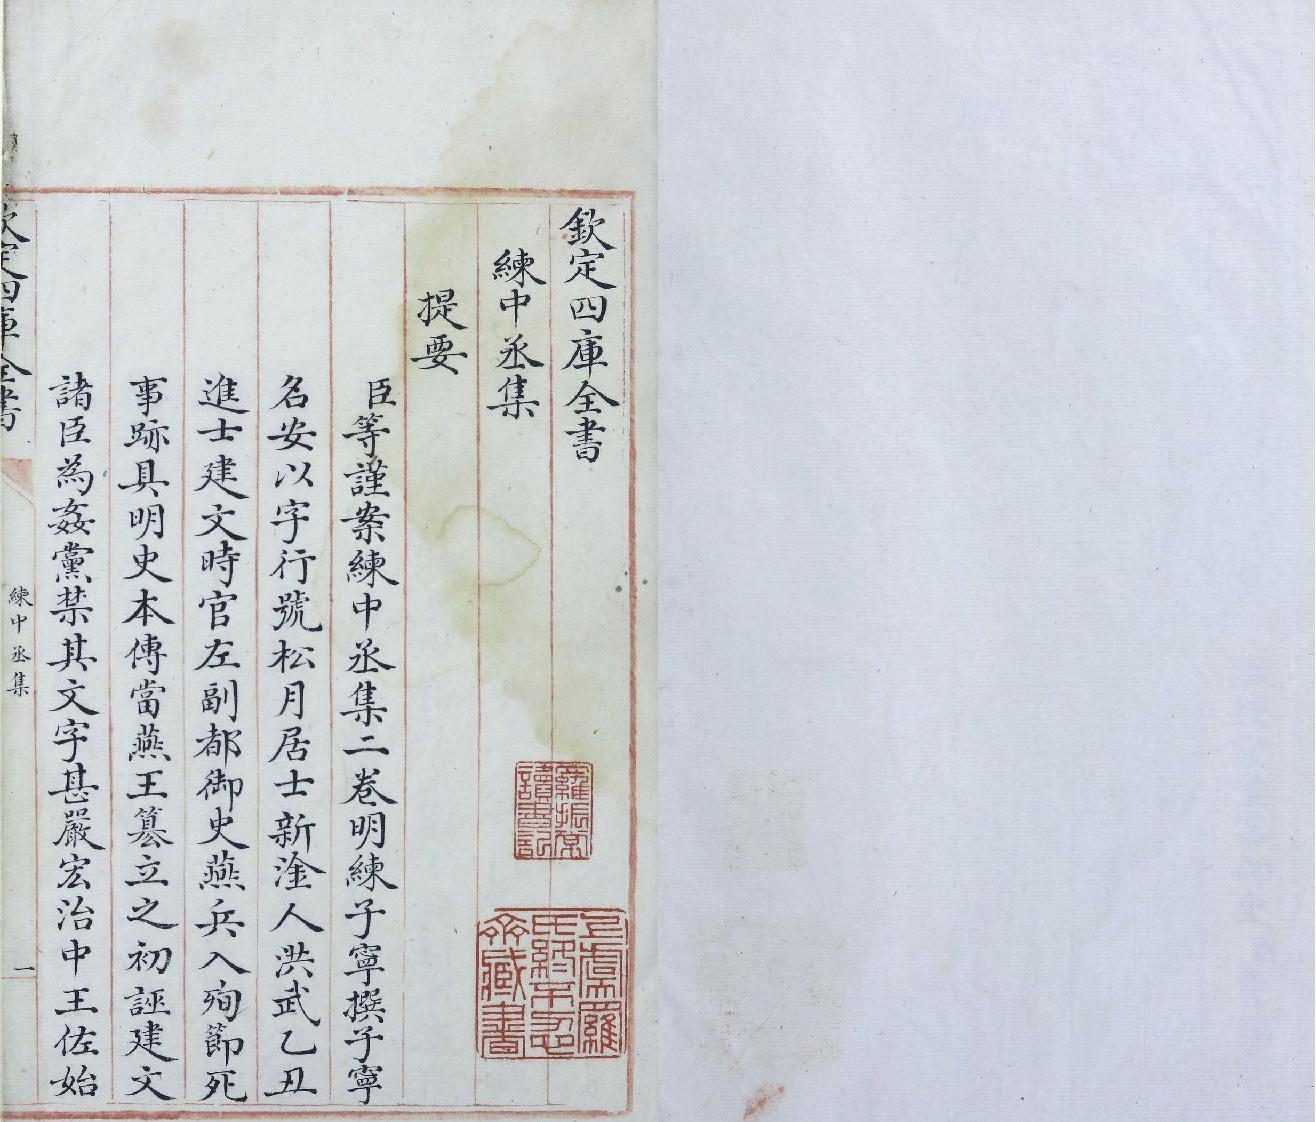 欽定四庫全書
練中丞集
提要
臣等謹案練中丞集二卷明練子寧撰子寧
名安以字行號松月居士新淦人洪武乙丑
進士建文時官左副都御史燕兵入殉節死
事跡具明史本傳當燕王篡立之初誣建文
諸臣為姦黨禁其文字甚嚴宏治中王佐始
欽定四庫全書
練中丞集
一
羅振常
讀書記
上虞羅
氏終不忍
齋藏書